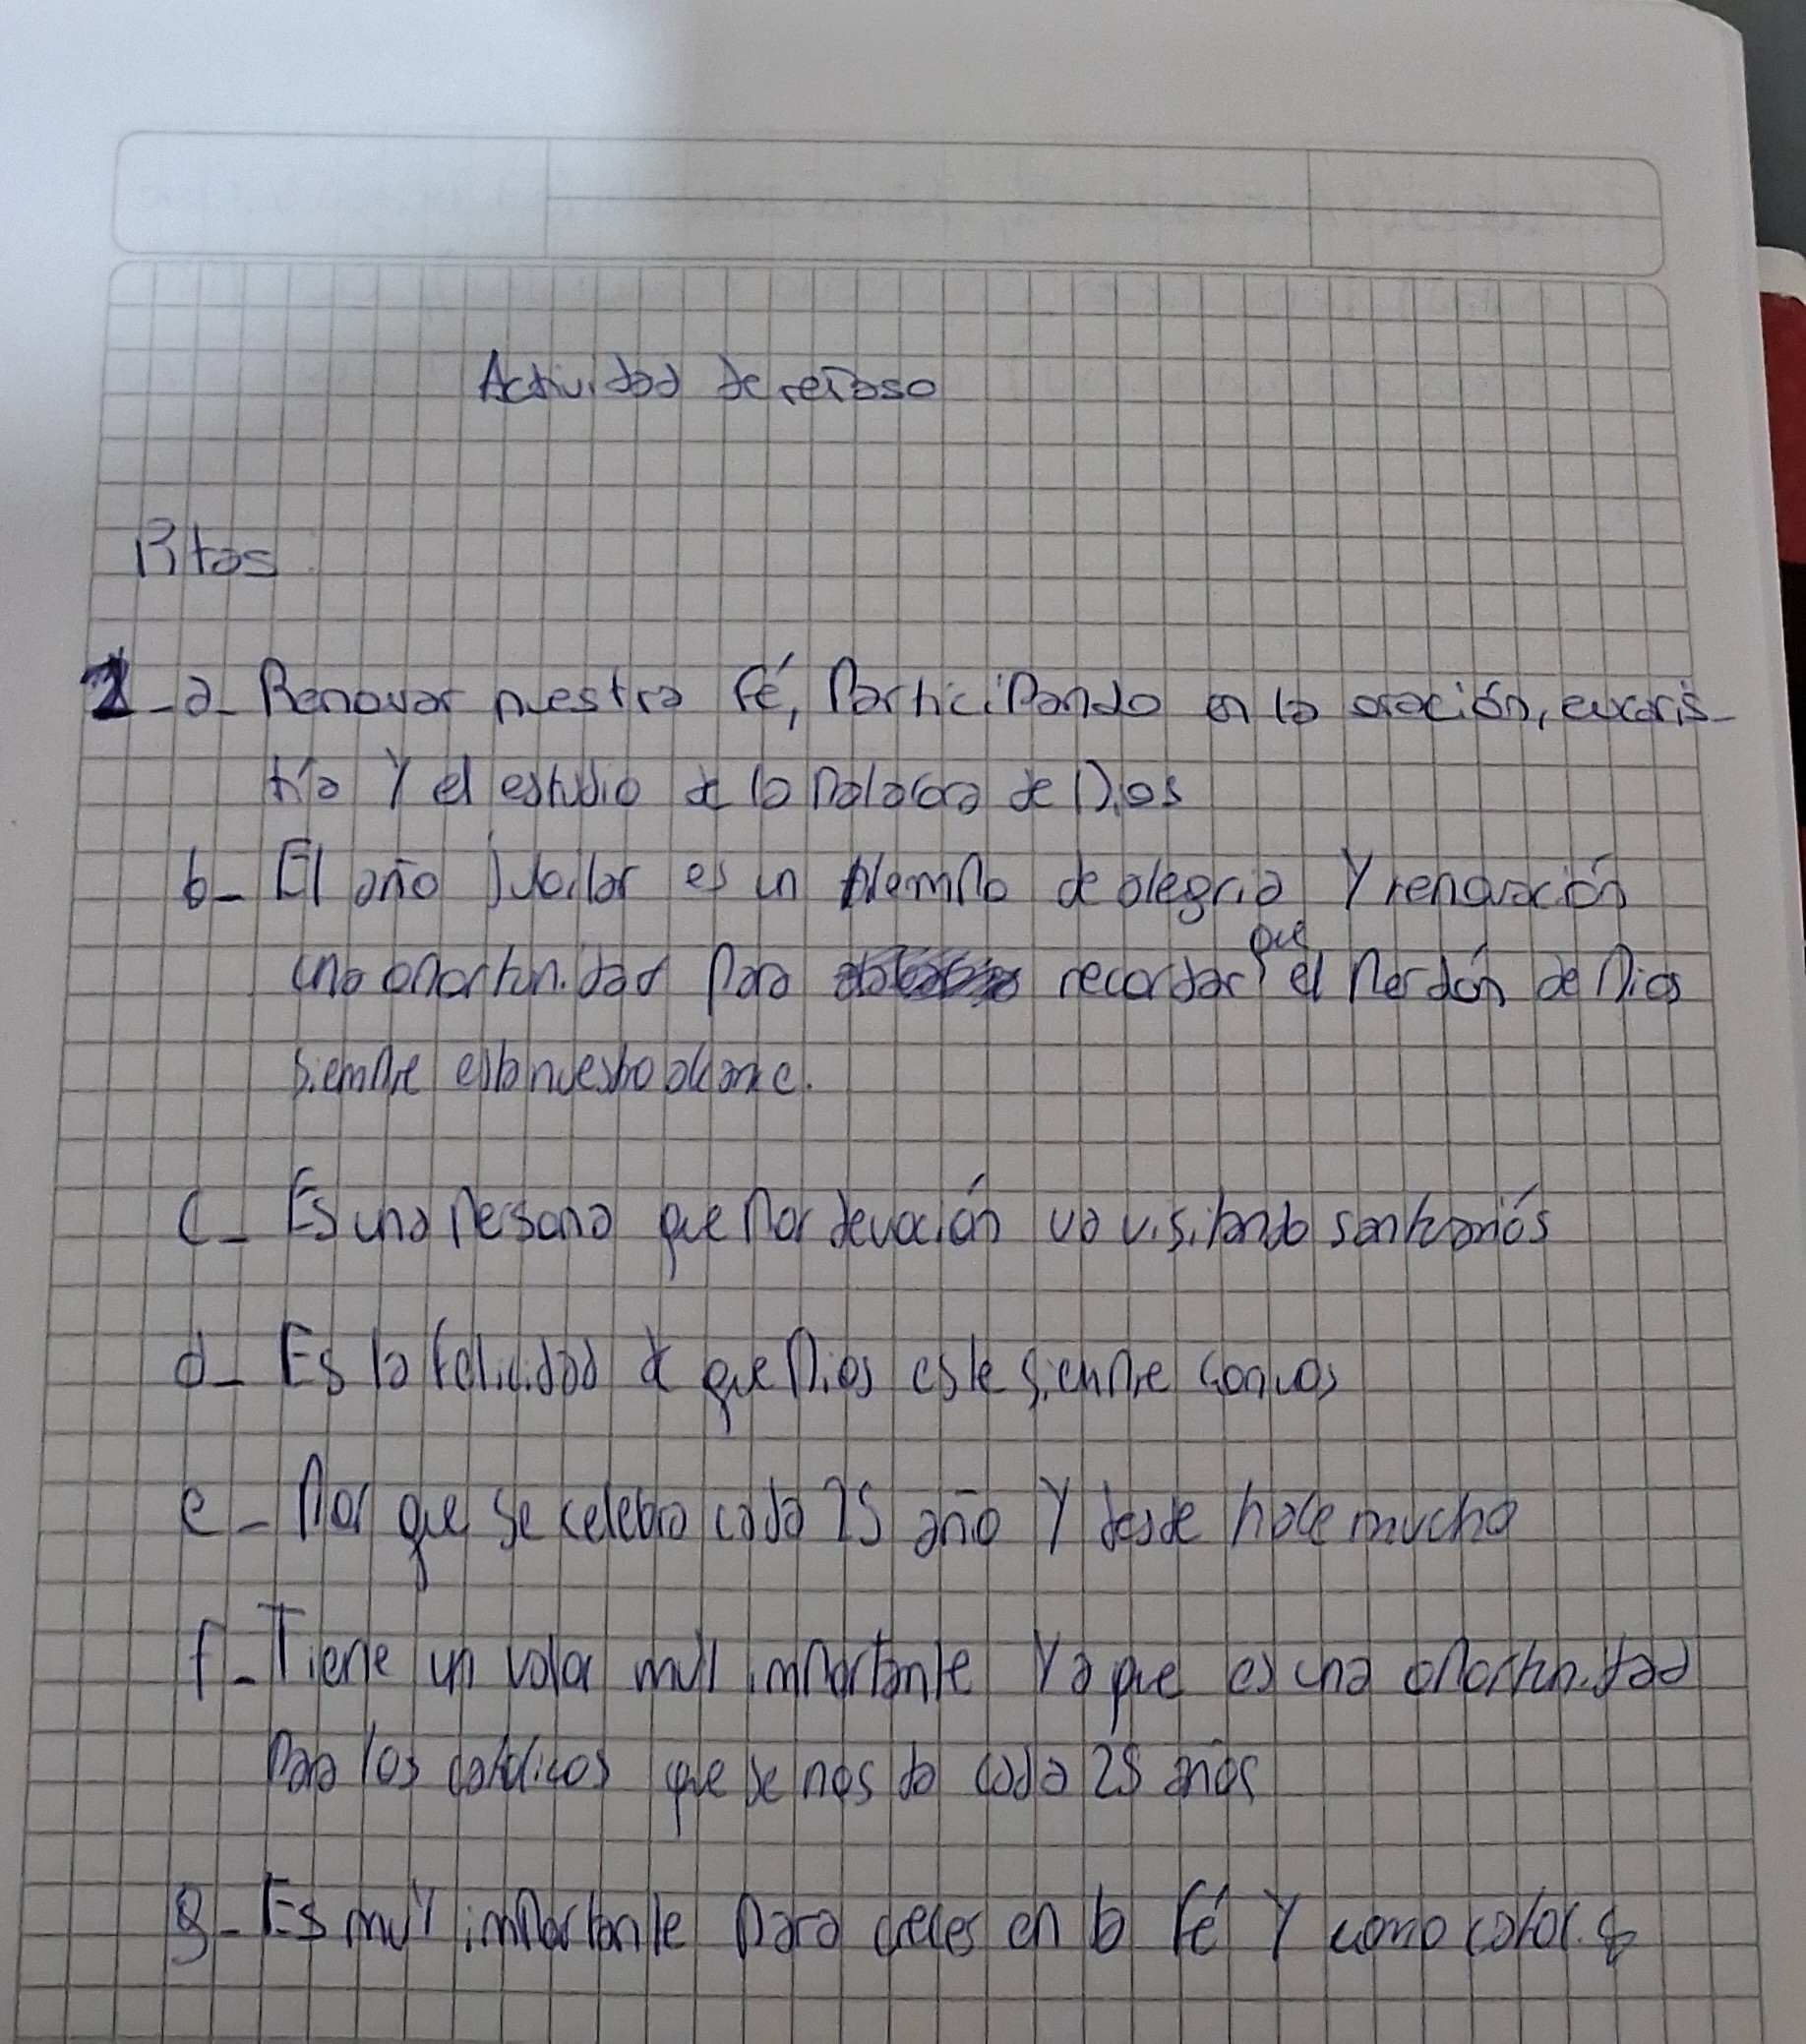 Actividad de repaso
Ptas
1-a- Renovar nuestra fé, Participando en la oración, eucaris-
tía Y el estudio de la Palabra de Dios
b- El año Jubilar es un tiempo de alegria Y renovación
una oportunidad Para recordar que el Perdón de Dios
siempre esta nuestro alcance.
c- Es una Persona que Por devoción va visitando santuariós
d- Es la felicidad de que Dios este siempre con vos
e- Por que se celebra cada 25 año Y desde hace mucho
f- Tiene un valor muY importante Ya que es una oportunidad
Para los católicos que se nos da cada 25 años
g- Es muY importante Para creces en la fé Y como